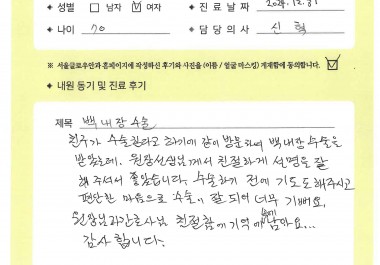 ✦ 성별 □ 남자 ☑ 여자 ✦ 진료 날짜 2024. 12. 31
✦ 나이 70 ✦ 담당의사 신
※ 서울글로우안과 홈페이지에 작성하신 후기와 사진을 (이름 / 얼굴 마스킹) 게재함에 동의합니다. ☑
✦ 내원 동기 및 진료 후기
제목 백내장수술
친구가 수술한다고 하기에 같이 방문하여 백내장 수술을
받았는데. 원장선생님께서 친절하게 설명을 잘
해 주셔서 좋았습니다. 수술하기 전에 기도도 해주시고
편안한 마음으로 수술이 잘 되어 너무 기뻐요.
원장님과 간호사님 친절함에 기억에 남아요...
감사 합니다.